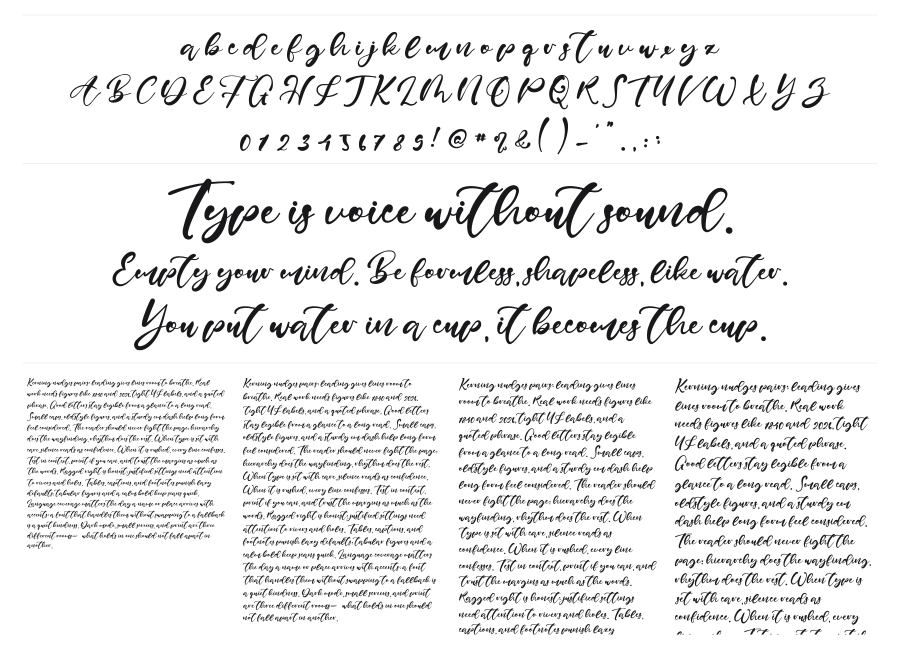 a b c d e f g h i j k l m n o p q r s t u v w x y z
A B C D E F G H I J K L M N O P Q R S T U V W X Y Z
0 1 2 3 4 5 6 7 8 9 ! @ # % & ( ) - ' " . , ; :
Type is voice without sound.
Empty your mind. Be formless, shapeless, like water.
You put water in a cup, it becomes the cup.
Kerning nudges pairs; leading gives lines room to breathe. Real
work needs figures like and 2026, tight UI labels, and a quoted
phrase. Good letters stay legible from a glance to a long read.
Small caps, oldstyle figures, and a sturdy em dash help long form
feel considered. The reader should never fight the page; hierarchy
does the wayfinding, rhythm does the rest. When type is set with
care, silence reads as confidence. When it is rushed, every line confesses.
Test in context, print if you can, and trust the margins as much as
the words. Ragged right is honest; justified settings need attention
to rivers and holes. Tables, captions, and footnotes punish lazy
defaults; tabular figures and a calm bold keep scans quick.
Language coverage matters the day a name or place arrives with
accents; a font that handles them without swapping to a fallback
is a quiet kindness. Dark mode, small screens, and print are three
different rooms— what holds in one should not fall apart in
another.
Kerning nudges pairs; leading gives lines room to
breathe. Real work needs figures like and 2026,
tight UI labels, and a quoted phrase. Good letters
stay legible from a glance to a long read. Small caps,
oldstyle figures, and a sturdy em dash help long form
feel considered. The reader should never fight the page;
hierarchy does the wayfinding, rhythm does the rest.
When type is set with care, silence reads as confidence.
When it is rushed, every line confesses. Test in context,
print if you can, and trust the margins as much as the
words. Ragged right is honest; justified settings need
attention to rivers and holes. Tables, captions, and
footnotes punish lazy defaults; tabular figures and a
calm bold keep scans quick. Language coverage matters
the day a name or place arrives with accents; a font
that handles them without swapping to a fallback is
a quiet kindness. Dark mode, small screens, and print
are three different rooms— what holds in one should
not fall apart in another.
Kerning nudges pairs; leading gives lines
room to breathe. Real work needs figures like
and 2026, tight UI labels, and a
quoted phrase. Good letters stay legible
from a glance to a long read. Small caps,
oldstyle figures, and a sturdy em dash help
long form feel considered. The reader should
never fight the page; hierarchy does the
wayfinding, rhythm does the rest. When
type is set with care, silence reads as
confidence. When it is rushed, every line
confesses. Test in context, print if you can, and
trust the margins as much as the words.
Ragged right is honest; justified settings
need attention to rivers and holes. Tables,
captions, and footnotes punish lazy
Kerning nudges pairs; leading gives
lines room to breathe. Real work
needs figures like and 2026, tight
UI labels, and a quoted phrase.
Good letters stay legible from a
glance to a long read. Small caps,
oldstyle figures, and a sturdy em
dash help long form feel considered.
The reader should never fight the
page; hierarchy does the wayfinding,
rhythm does the rest. When type is
set with care, silence reads as
confidence. When it is rushed, every